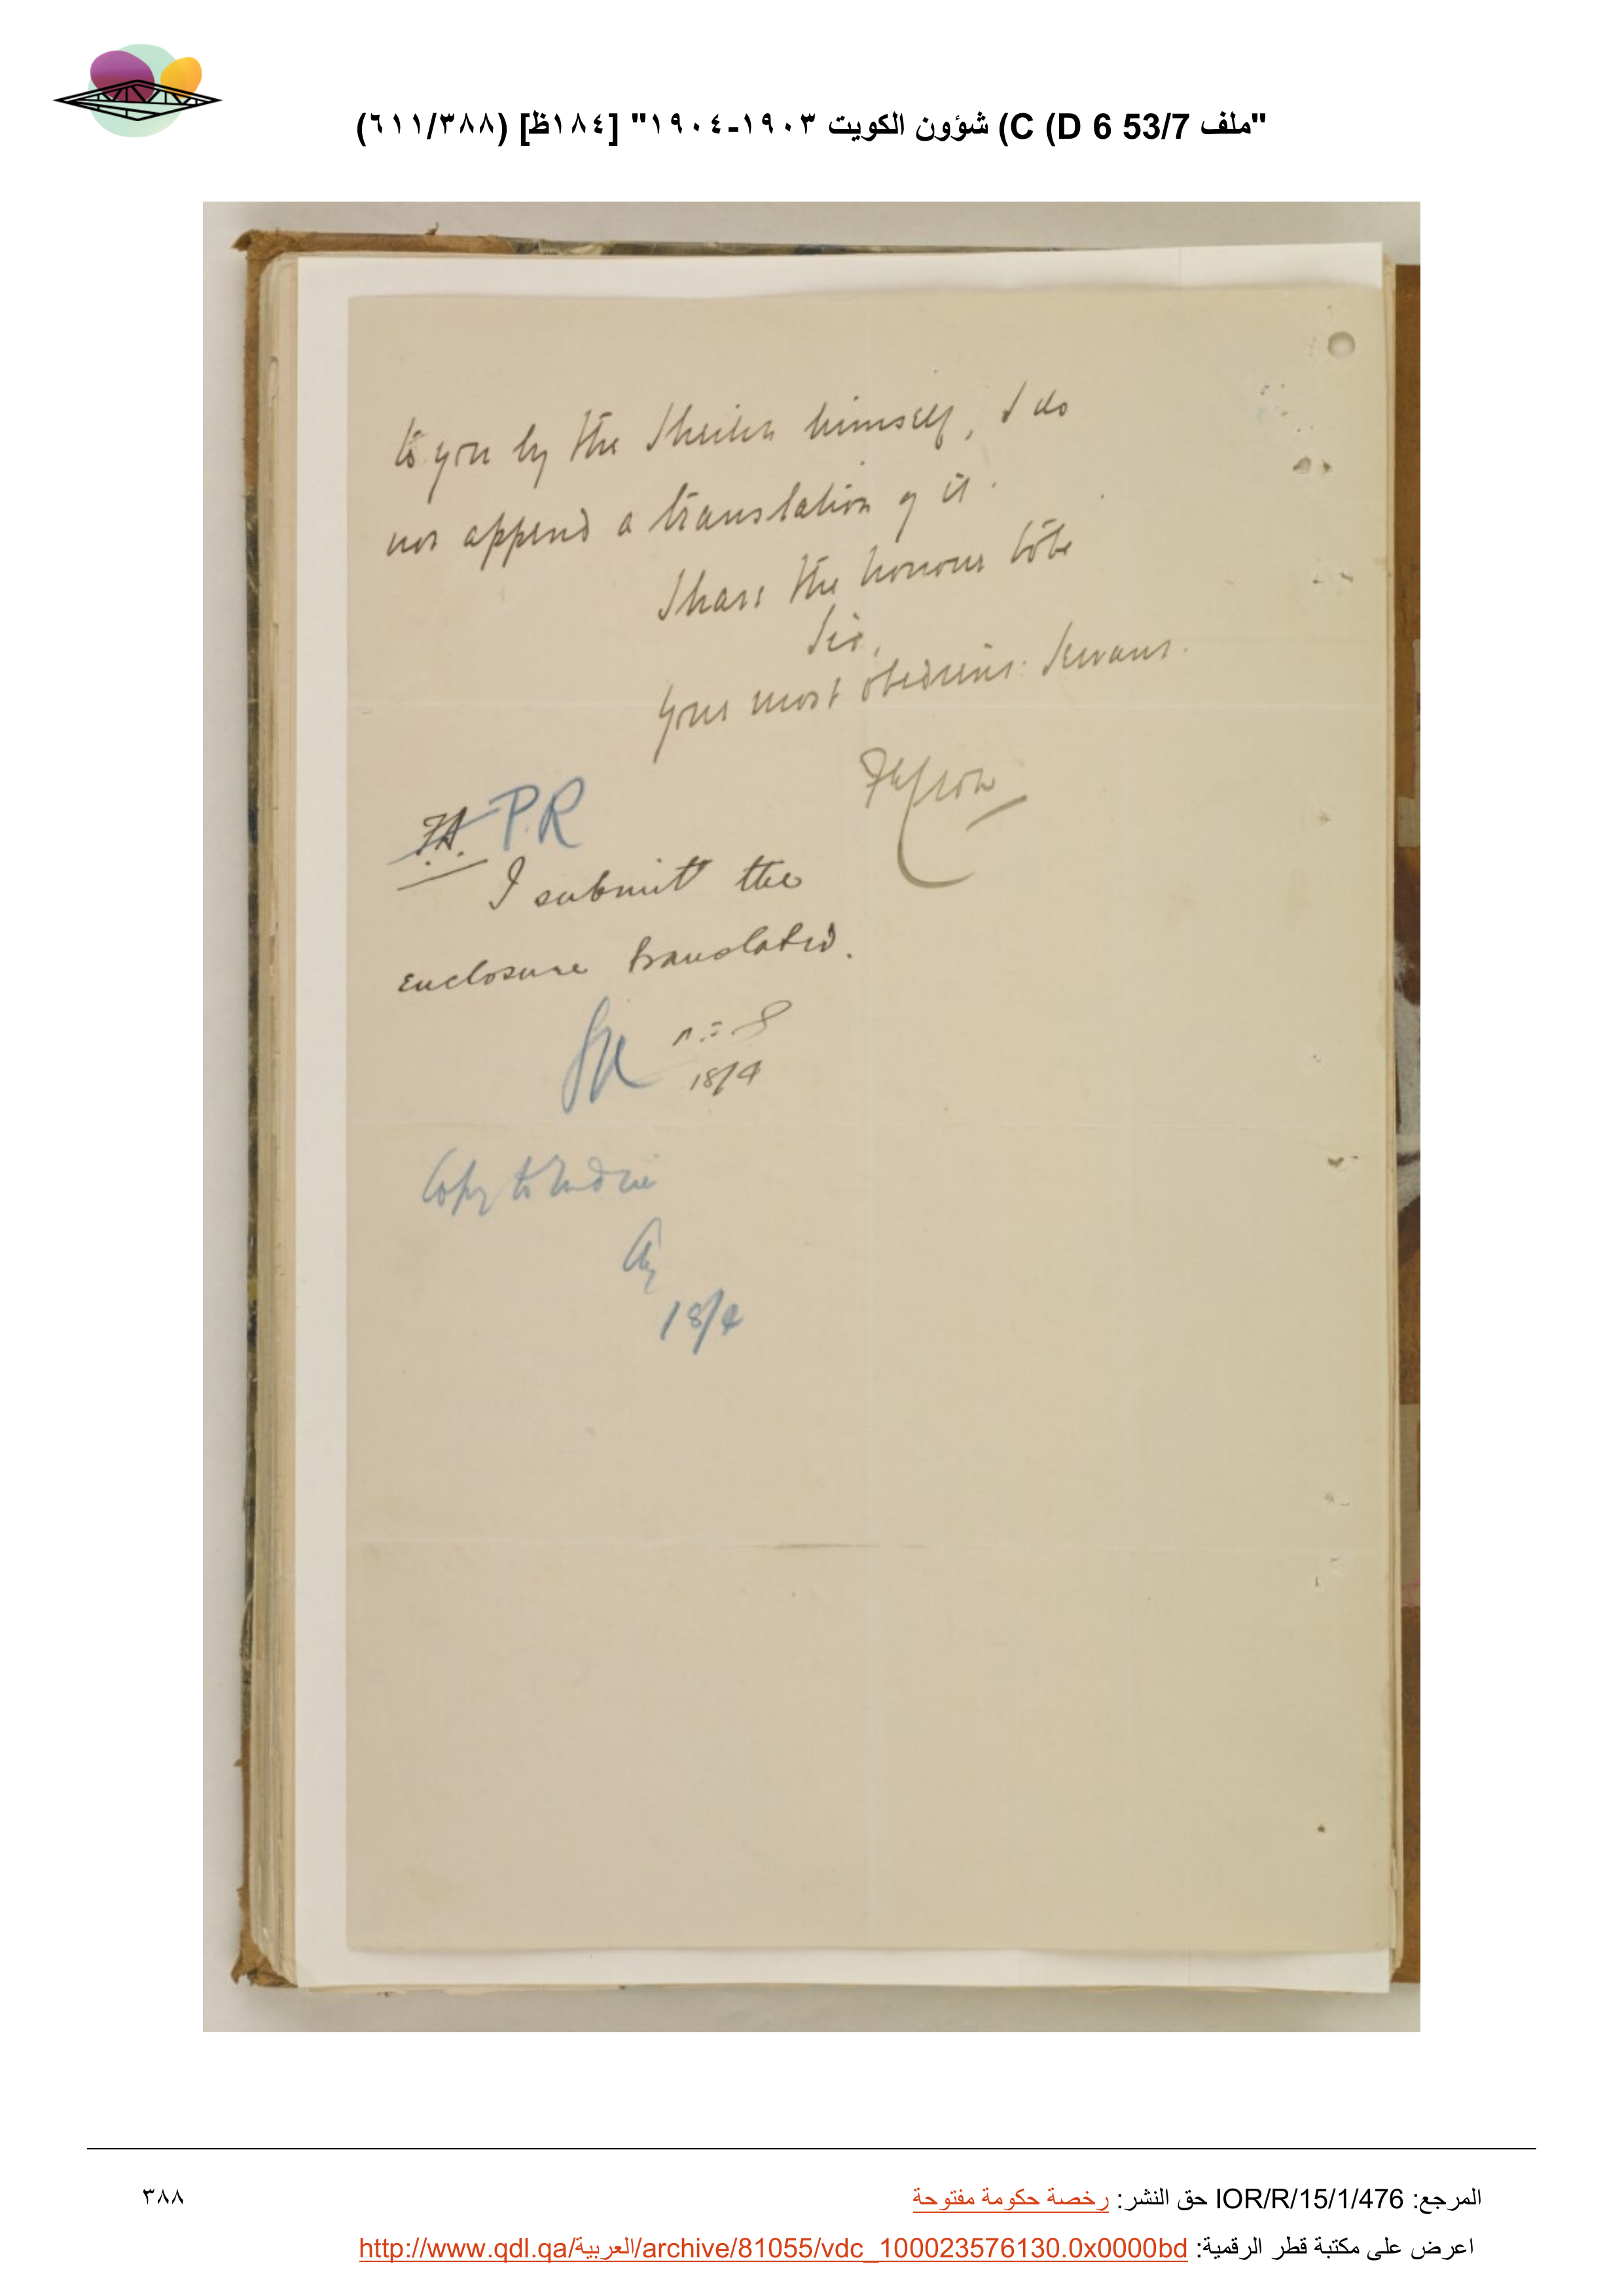 "ملف 53/7 C (D 6) شؤون الكويت ١٩٠٣-١٩٠٤" [١٨٤ظ] (٦١١/٣٨٨)
to you by the Sheikh himself, I do
not append a translation of it.
I have the honour to be
Sir,
Your most obedient Servant.
F.A. P.R
I submit the
enclosure translated.
18/4
Copy to India
18/4
المرجع: IOR/R/15/1/476 حق النشر: رخصة حكومة مفتوحة
٣٨٨
اعرض على مكتبة قطر الرقمية: http://www.qdl.qa/العربية/archive/81055/vdc_100023576130.0x0000bd